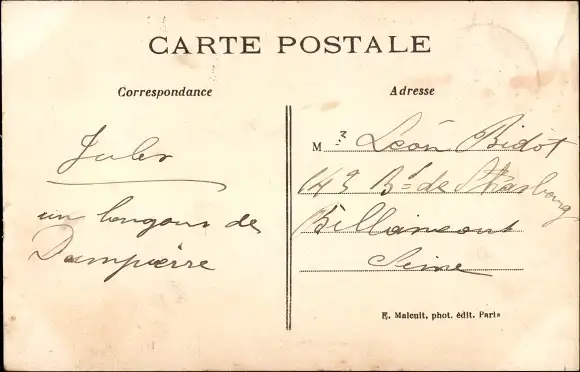 CARTE POSTALE
Correspondance
Adresse
Jules
un bonjour de
Dampierre
M r Léon Bidot
143 Bd de Strasbourg
Billancourt
Seine
E. Malcuit, phot. édit. Paris